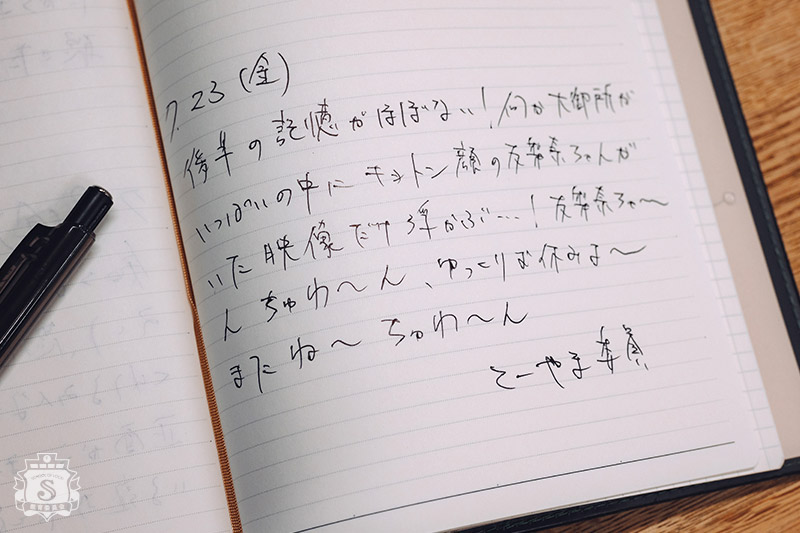 7.23 (金)
後半の記憶がほぼない!何か大御所が
いっぱいの中にキョトン顔の友梨奈ちゃんが
いた映像だけ浮かぶ…!友梨奈ちゃ〜
んちゅわ〜ん、ゆっくりお休みよ〜
またね〜ちゅわ〜ん
とーやま委員
S